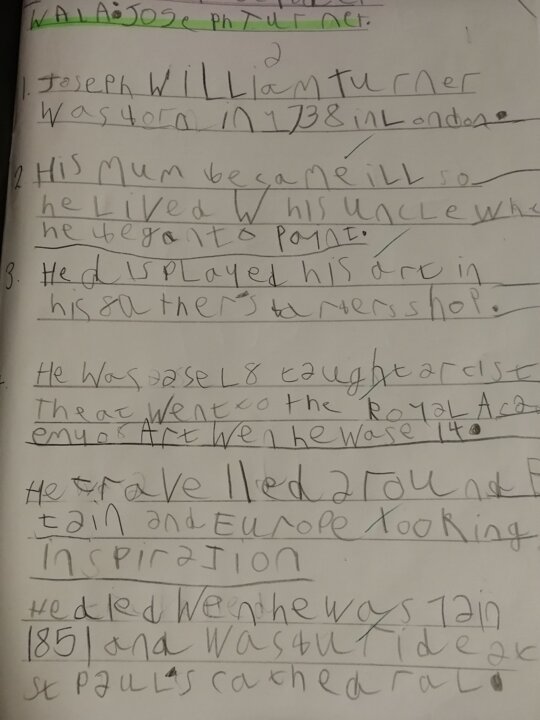 WALA: Joseph Turner.
2
1. Joseph William Turner
Was born in 1738 in London.
2 His Mum became iLL so
he Lived W his UncLe Whe
he began to paint.
3. He displayed his art in
his father's barbers shop.
He Was a seLf taught arcist
Theat Went to the RoyaL Aca
emy of Art Wen he Wase 14.
He travelled around B
tain and Europe Looking
Inspiration
He died Wen he was 7 in
1851 and Was buride at
St PauL's cathedraL.